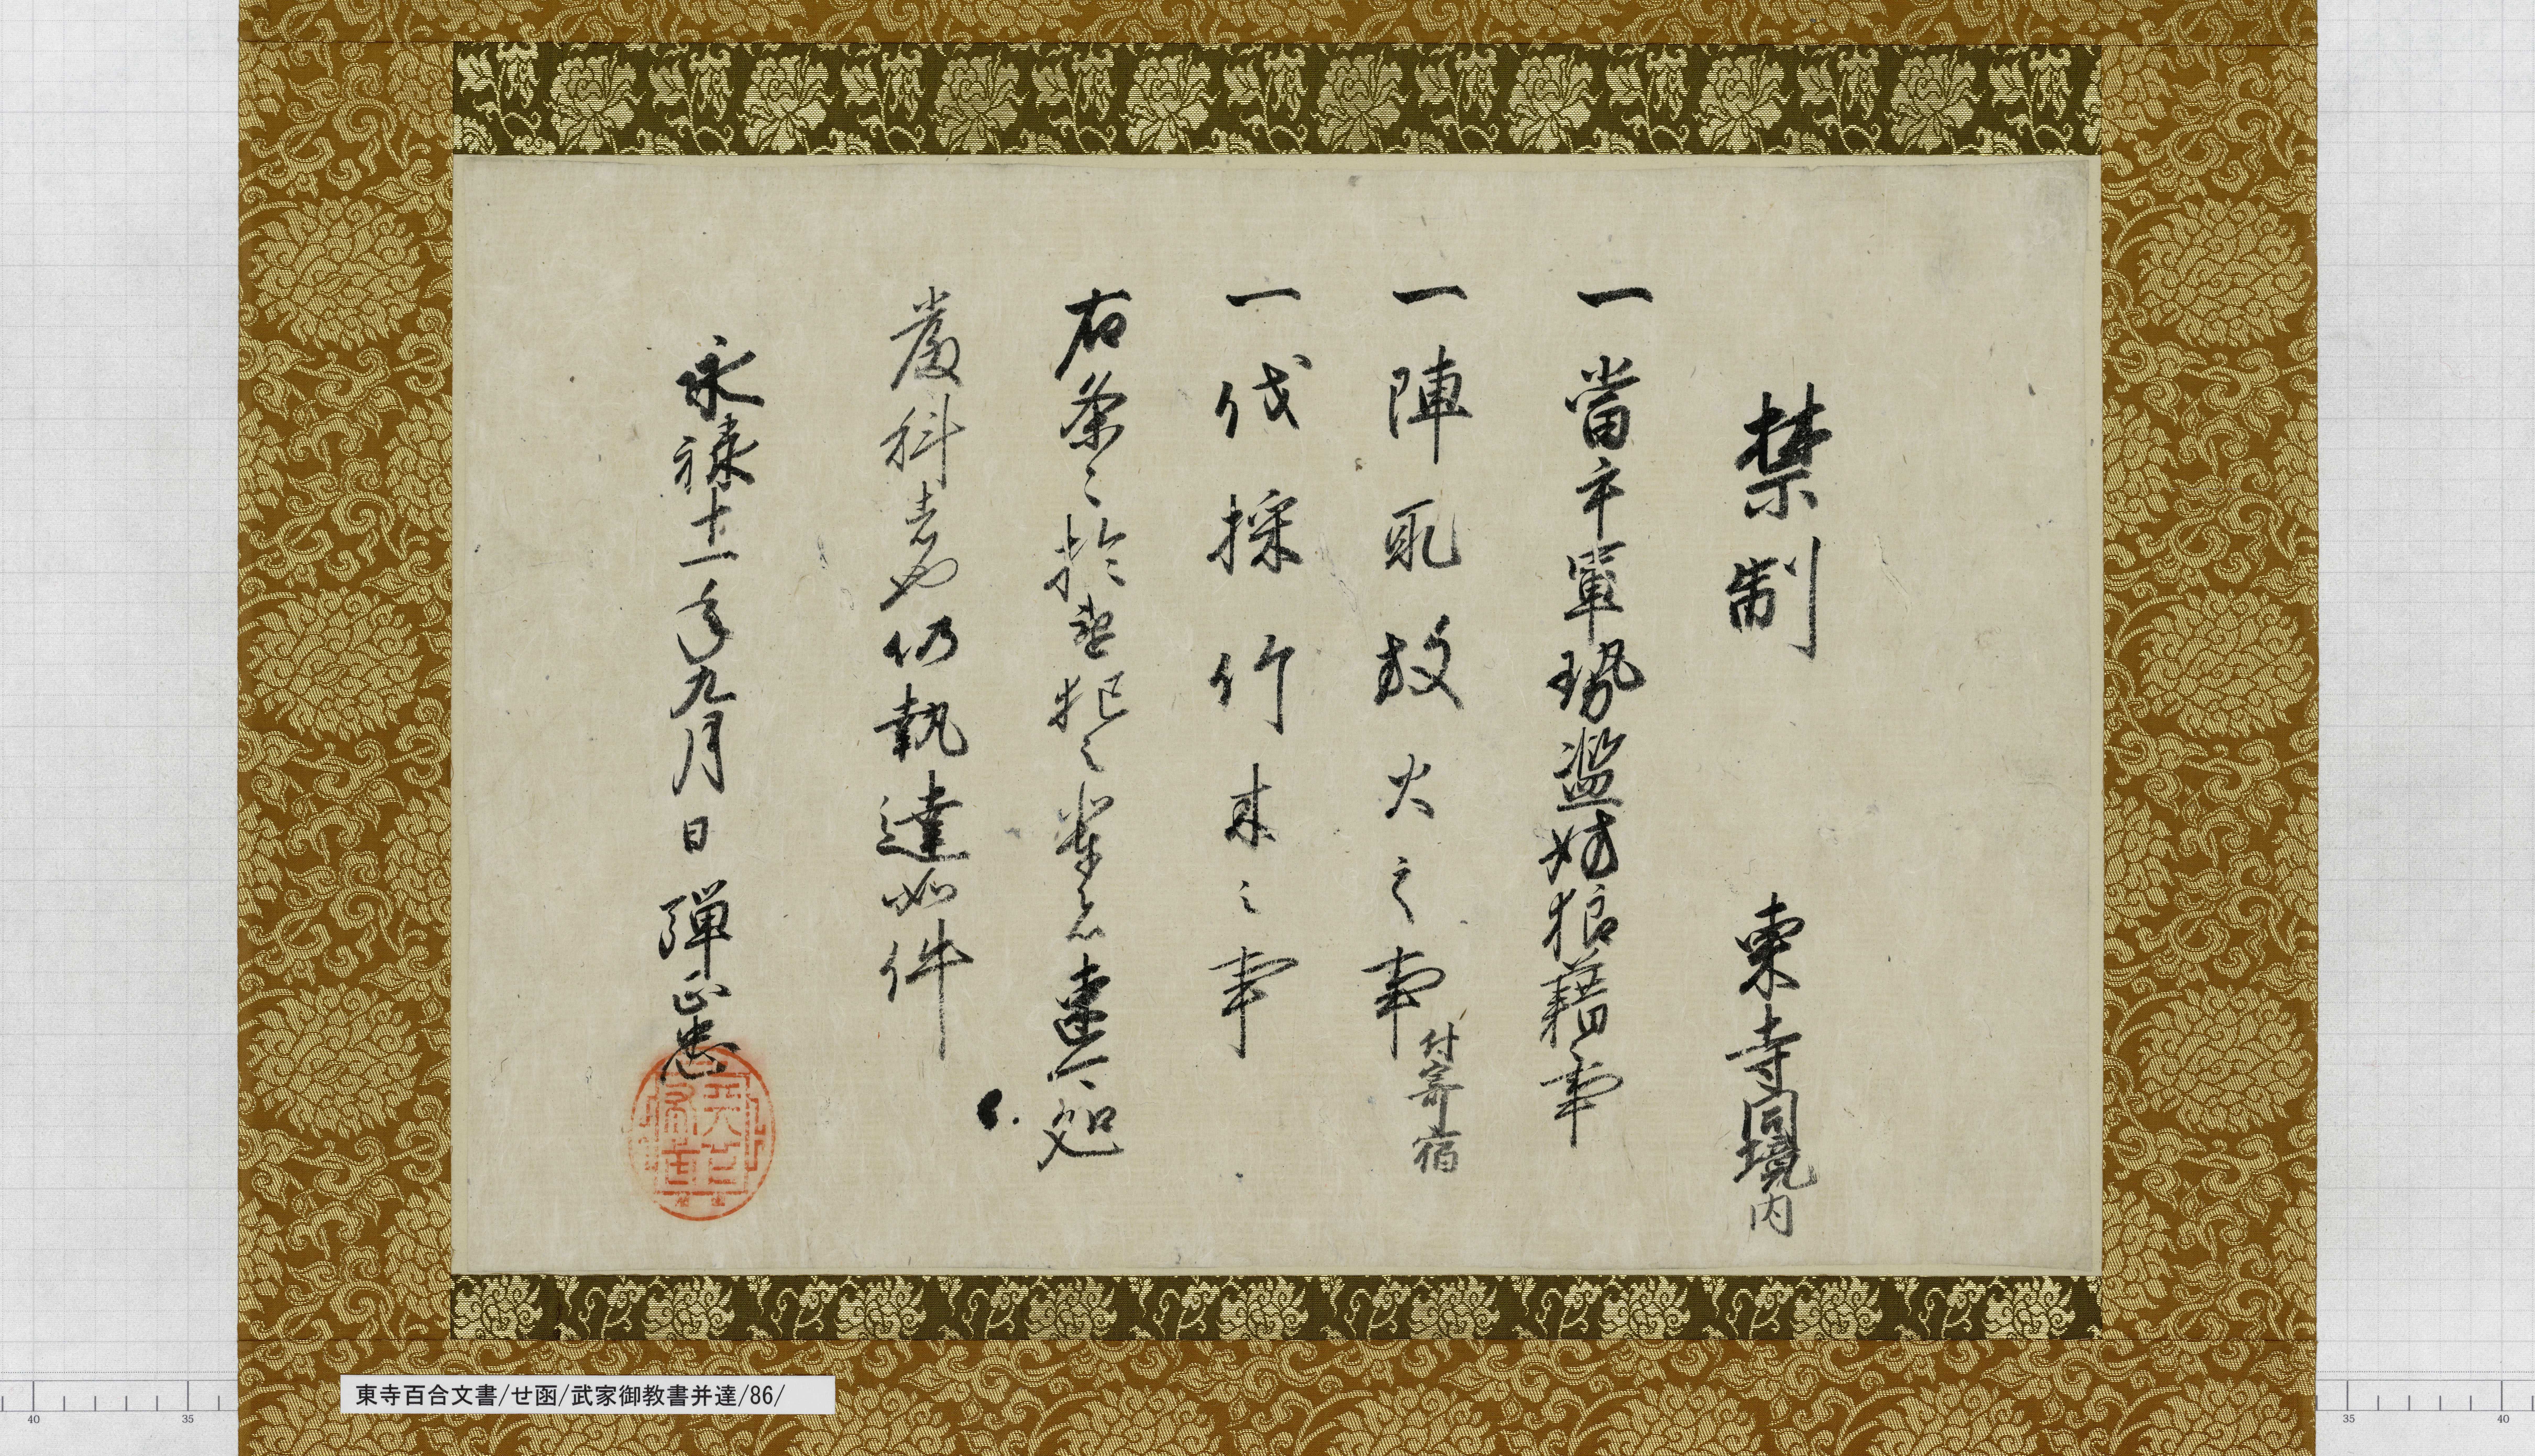 禁制 東寺同境内
一當手軍勢濫妨狼藉事
一陣取放火之事付寄宿
一伐採竹木之事
右条々於違犯之輩者速可処
厳科者也仍執達如件
永禄十一年九月日 弾正忠
天下布武
東寺百合文書/せ函/武家御教書并達/86/
40
35
35
40